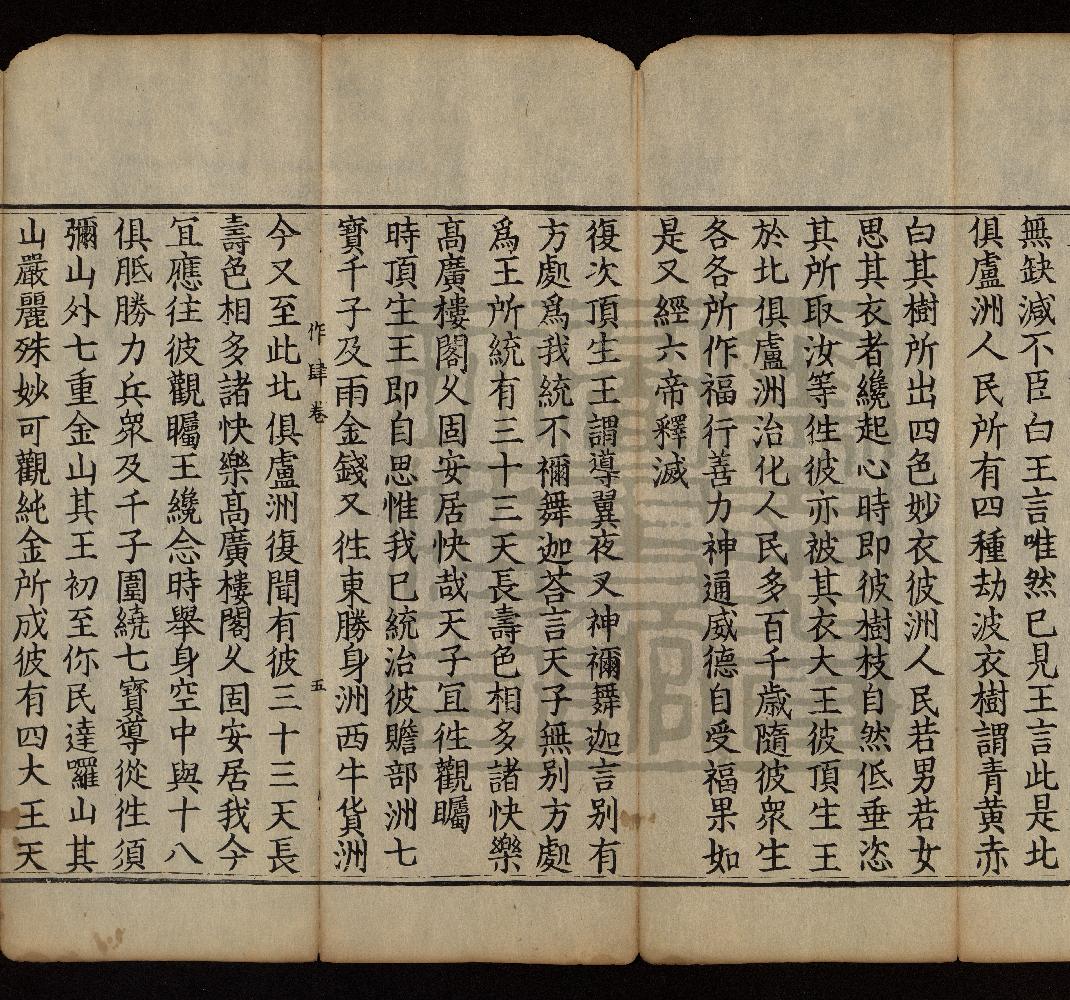 無缺減不臣白王言唯然已見王言此是北
俱盧洲人民所有四種劫波衣樹謂青黃赤
白其樹所出四色妙衣彼洲人民若男若女
思其衣者纔起心時即彼樹枝自然低垂恣
其所取汝等徃彼亦被其衣大王彼頂生王
於北俱盧洲治化人民多百千歲隨彼衆生
各各所作福行善力神通威德自受福果如
是又經六帝釋滅
復次頂生王謂導翼夜叉神禰舞迦言別有
方處爲我統不禰舞迦荅言天子無別方處
爲王所統有三十三天長壽色相多諸快樂
高廣樓閣乆固安居快哉天子冝徃觀矚
時頂生王即自思惟我已統治彼贍部洲七
寶千子及雨金錢又徃東勝身洲西牛貨洲
作肆卷 五
今又至此北俱盧洲復聞有彼三十三天長
壽色相多諸快樂高廣樓閣乆固安居我今
冝應往彼觀矚王纔念時舉身空中與十八
俱胝勝力兵衆及千子圍繞七寶導從徃須
彌山外七重金山其王初至你民達羅山其
山嚴麗殊妙可觀純金所成彼有四大王天